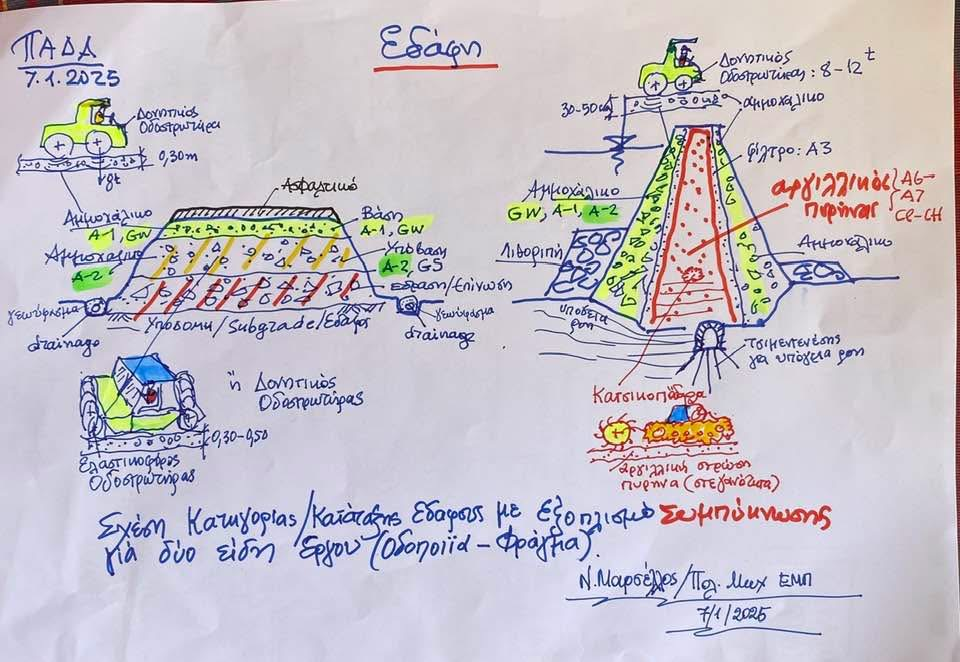 ΠΑΔΑ
7.1.2025
Εδάφη
Δονητικός
Οδοστρωτήρα
0,30m
8t
Αμμοχάλικο
A-1, GW
Αμμοχάλικο
A-2
γεωύφασμα
drainage
Ασφαλτικό
Βάση
A-1, GW
Υπόβαση
A-2, GS
έδραση/Επίχωση
γεωύφασμα
drainage
Υποδομη/Subgrade/Εδαφος
ή Δονητικός
Οδοστρωτήρας
0,30-0,50
Ελαστικοφόρος
Οδοστρωτήρας
Δονητικός
Οδοστρωτήρας: 8-12t
30-50cm
αμμοχάλικο
φίλτρο: A3
αργιλλικός
πυρήνας
A6-
A7
CL-CH
Αμμοχάλικο
GW, A-1, A-2
Λιθοριπή
Αμμοχάλικο
υπόγεια
ροη
Τσιμεντενέσης
για υπόγεια ροη
Κατσικοπόδαρα
αργιλλική στρώση
πυρήνα (στεγανότητα)
Σχέση Κατηγορίας/Κατάταξης εδαφους με εξοπλισμό Συμπύκνωσης
για δύο είδη έργου (Οδοποιϊα - Φράγμα).
Ν. Μαρσέλλος/Πολ. Μηχ ΕΜΠ
7/1/2025